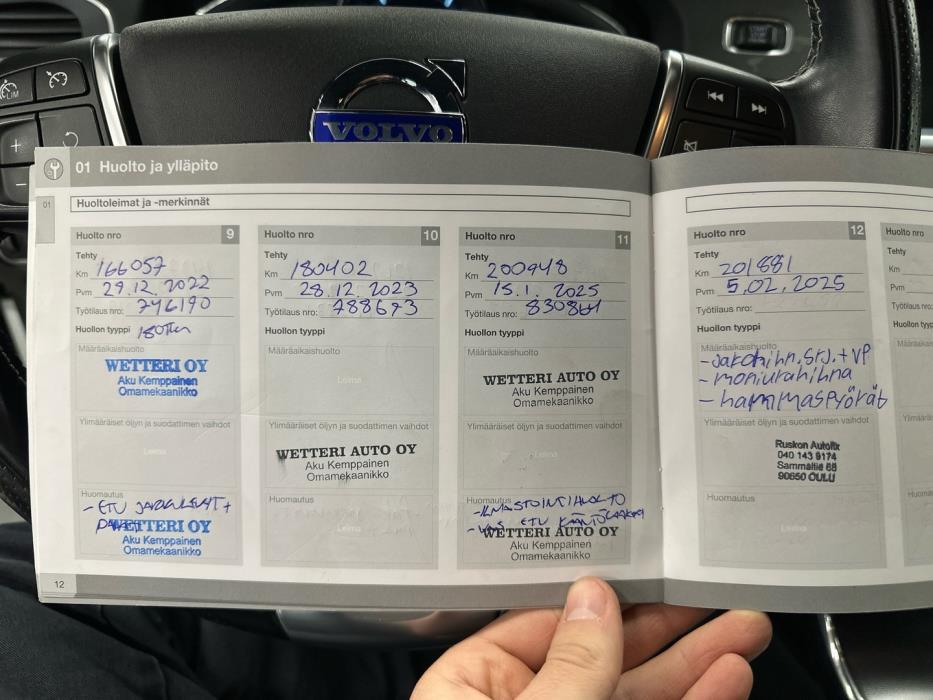 VOLVO
LIM
01 Huolto ja ylläpito
01
Huoltoleimat ja -merkinnät
Huolto nro 9
Tehty
Km 166057
Pvm 29.12.2022
Työtilaus nro: 746190
Huollon tyyppi 180Tkm
Määräaikaishuolto
WETTERI OY
Aku Kemppainen
Omamekaanikko
Ylimääräiset öljyn ja suodattimen vaihdot
Leima
Huomautus
- ETU JARRULEVYT +
WETTERI OY
Aku Kemppainen
Omamekaanikko
12
Huolto nro 10
Tehty
Km 180402
Pvm 28.12.2023
Työtilaus nro: 788673
Huollon tyyppi
Määräaikaishuolto
Leima
Ylimääräiset öljyn ja suodattimen vaihdot
WETTERI AUTO OY
Aku Kemppainen
Omamekaanikko
Huomautus
Leima
Huolto nro 11
Tehty
Km 200948
Pvm 15.1.2025
Työtilaus nro: 830861
Huollon tyyppi
Määräaikaishuolto
WETTERI AUTO OY
Aku Kemppainen
Omamekaanikko
Ylimääräiset öljyn ja suodattimen vaihdot
Leima
Huomautus
- ILMASTOINTIHUOLTO
- VAS ETU
WETTERI AUTO OY
Aku Kemppainen
Omamekaanikko
Huolto nro 12
Tehty
Km 201881
Pvm 5.02.2025
Työtilaus nro:
Huollon tyyppi
Määräaikaishuolto
- Jakohihn. srj. + VP
- moniurahihna
- hammaspyörät
Ylimääräiset öljyn ja suodattimen vaihdot
Ruskon Autofix
040 143 9174
Sammaltie 68
90650 OULU
Huomautus
Huolto nro
Tehty
Km
Pvm